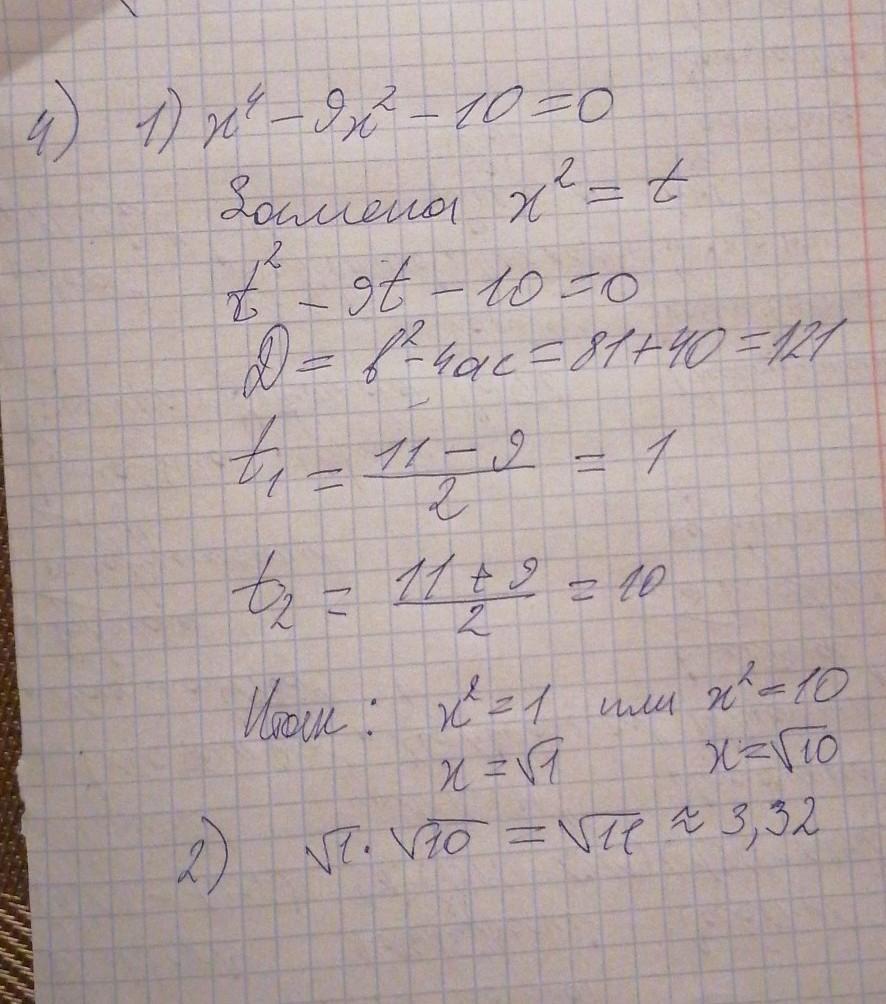 4) 1) x⁴ - 9x² - 10 = 0
Замена x² = t
t² - 9t - 10 = 0
D = b² - 4ac = 81 + 40 = 121
t₁ = (11 - 9)/2 = 1
t₂ = (11 + 9)/2 = 10
Итак: x² = 1 или x² = 10
x = √1 x = √10
2) √1 · √10 = √11 ≈ 3,32